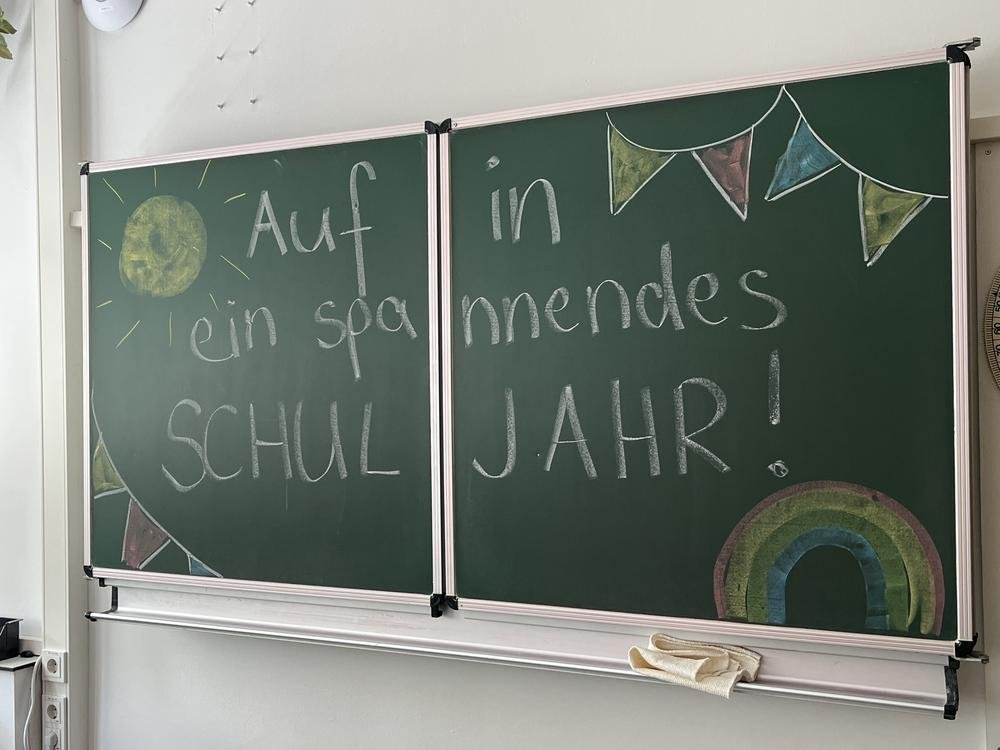 Auf in
ein spannendes
SCHULJAHR!